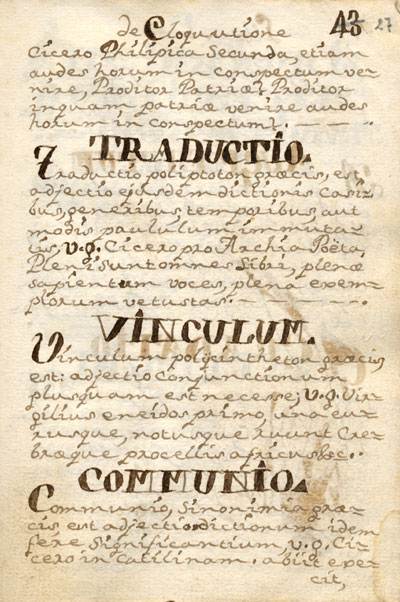 de Eloqutione
43
27
Cicero Philipica Secunda, etiam
audes horum in conspectum ve-
nire, Proditor Patriæ, Proditor
inquam patriæ venire audes
horum in conspectum?.
TRADUCTIO.
Traductio poliptoton græcis, est
adjectio ejusdem dictionis Casi-
bus, generibus, temporibus, aut
modis paululum immuta-
tis, v.g. Cicero pro Archia Poëta,
Pleni sunt omnes libri, plenæ
sapientum voces, plena exem-
plorum vetustas.
VINCULUM.
Vinculum polysintheton græcis
est: adjectio Conjunctionum
plusquam est necesse; v.g. Vir-
gilius eneidos primo, una eu-
rusque, notusque ruunt Cre-
bræque procellis africus &c.
COMMUNIO.
Communio, Sinonimia græ-
cis est adjectio dictionum idem
fere Significantium, v.g. Ci-
cero in Catilinam. abiit exce-
cit,